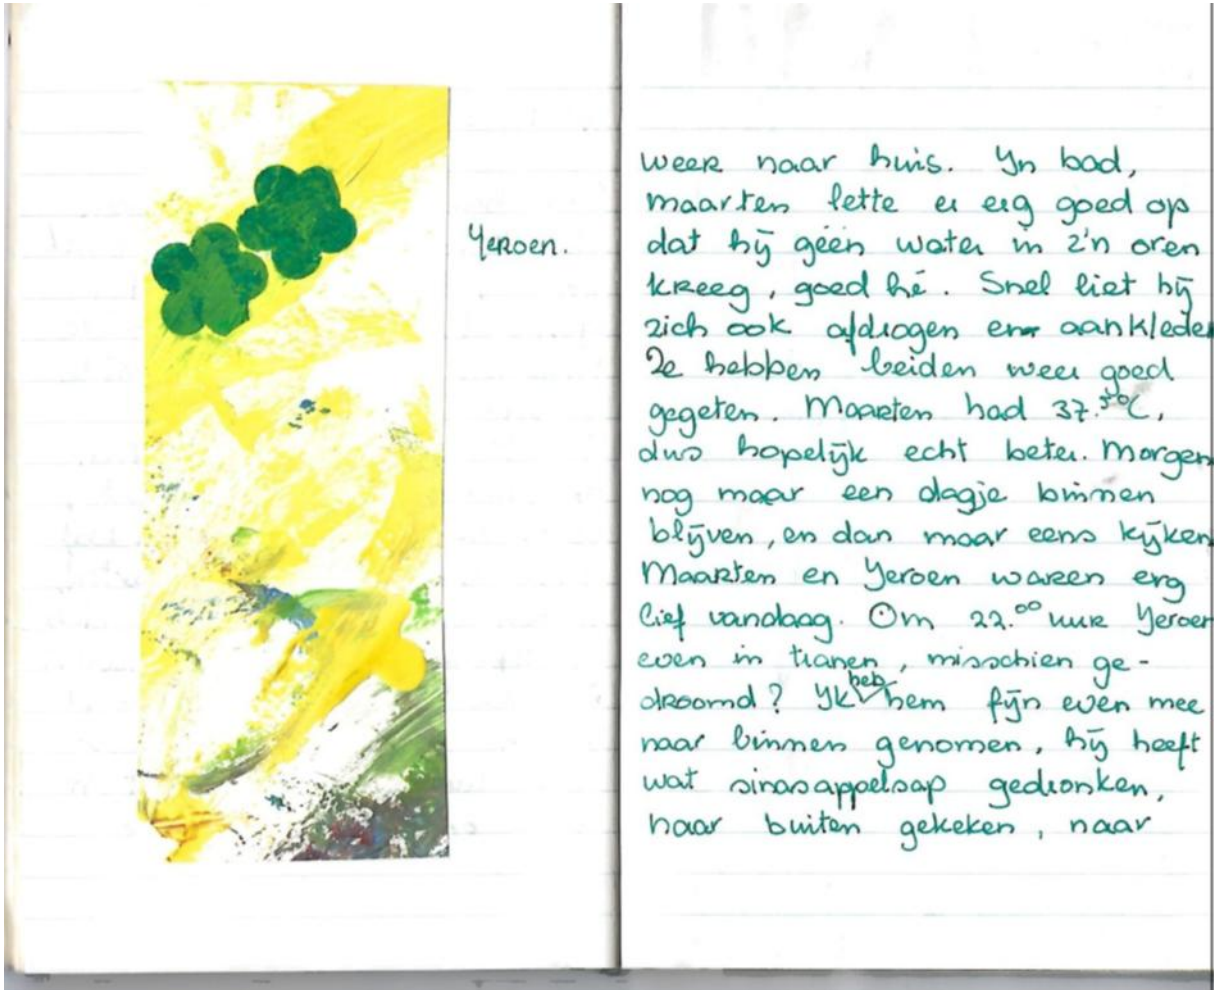 Yeroen.
weer naar huis. Yn bad,
maarten lette er erg goed op
dat hij géén water in z'n oren
kreeg, goed hé. Snel liet hij
zich ook afdrogen en aankleden
Ze hebben beiden weer goed
gegeten. Maarten had 37.5°C,
dus hopelijk echt beter. Morgen
nog maar een dagje binnen
blijven, en dan maar eens kijken
Maarten en Yeroen waren erg
lief vandaag. Om 22.00 uur Yeroen
even in tranen, misschien ge-
droomd? Yk heb hem fijn even mee
naar binnen genomen, hij heeft
wat sinasappelsap gedronken,
naar buiten gekeken, naar